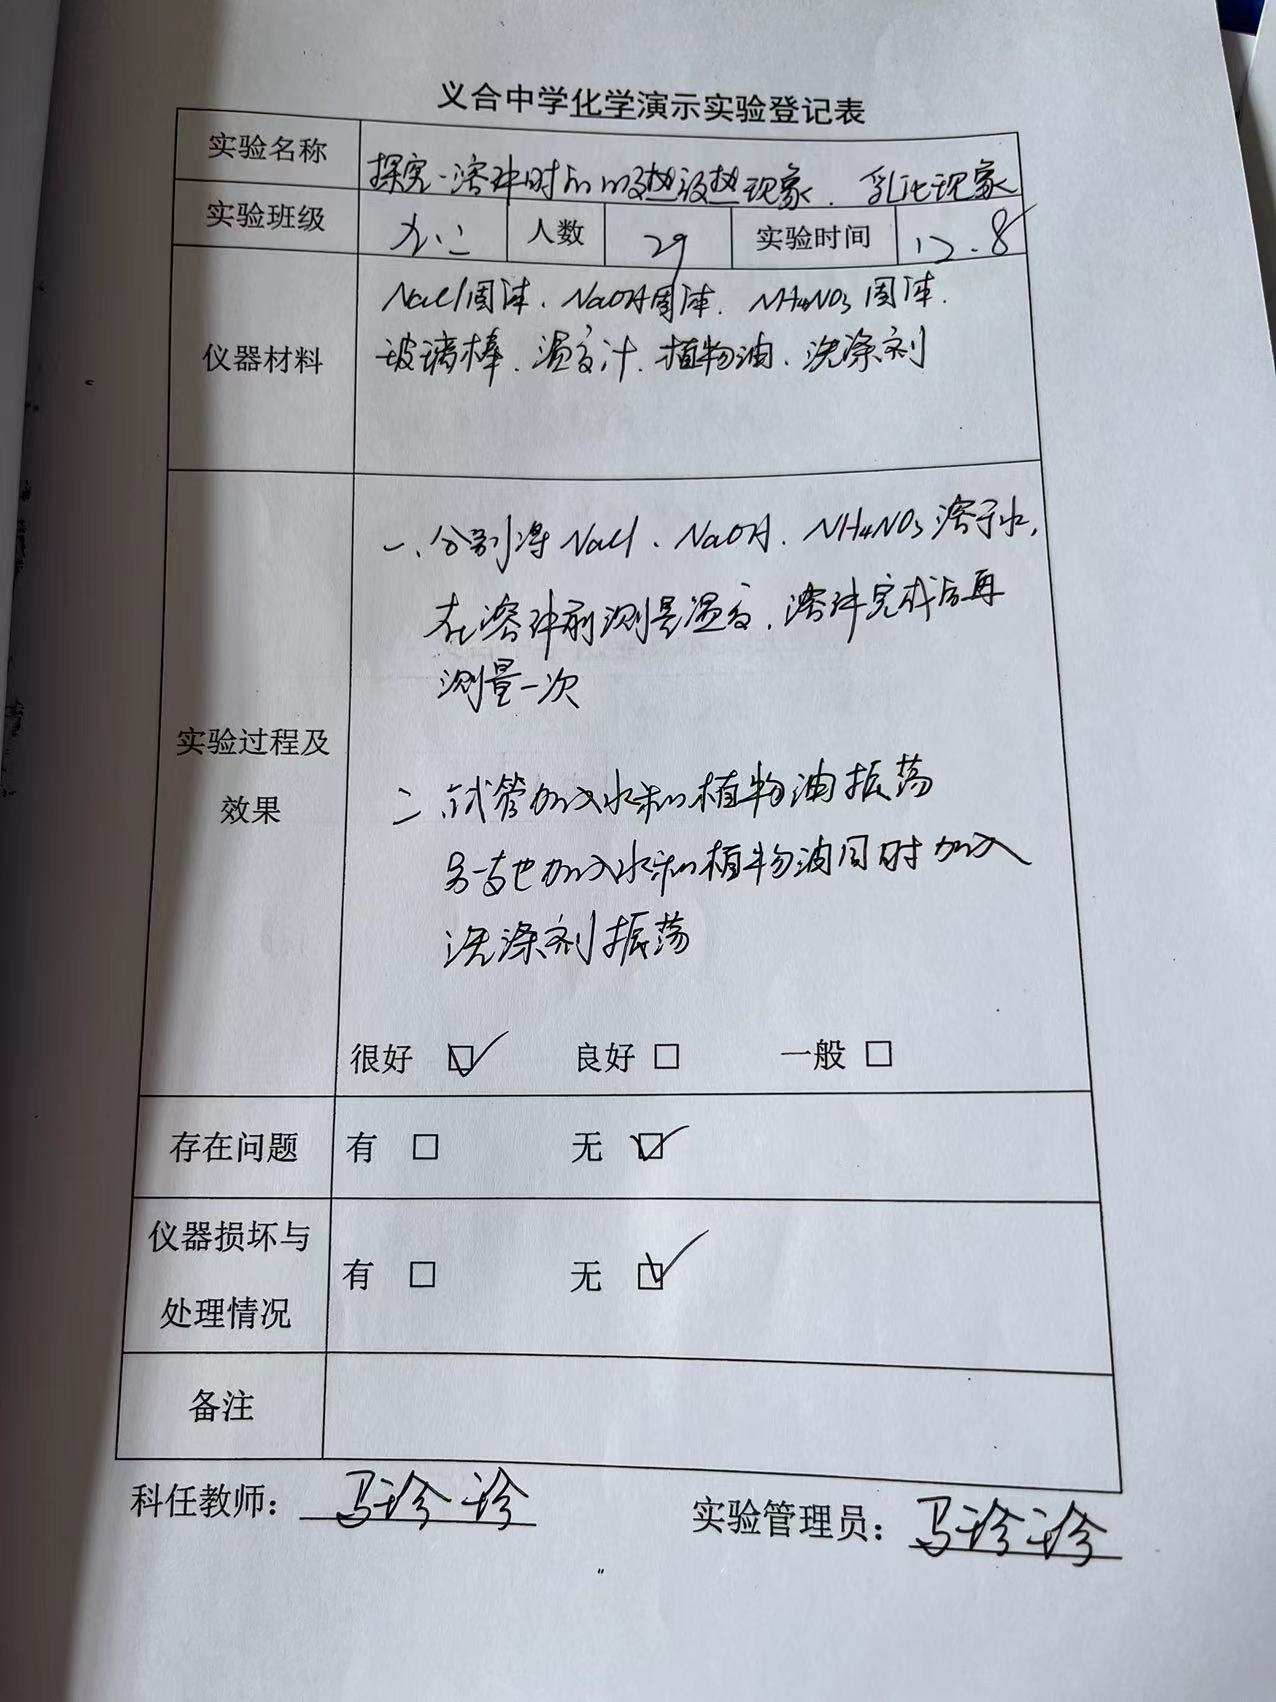 义合中学化学演示实验登记表
实验名称 探究溶解时的吸热放热现象、乳化现象
实验班级 九.二 人数 29 实验时间 12.8
仪器材料
NaCl固体、NaOH固体、NH4NO3固体、
玻璃棒、温度计、植物油、洗涤剂
实验过程及
效果
一、分别将NaCl、NaOH、NH4NO3溶于水,
在溶解前测量温度、溶解完成后再
测量一次
二、试管加入水和植物油振荡
另一支也加入水和植物油同时加入
洗涤剂振荡
很好 ☑ 良好 □ 一般 □
存在问题 有 □ 无 ☑
仪器损坏与
处理情况
有 □ 无 ☑
备注
科任教师: 马珍珍 实验管理员: 马珍珍